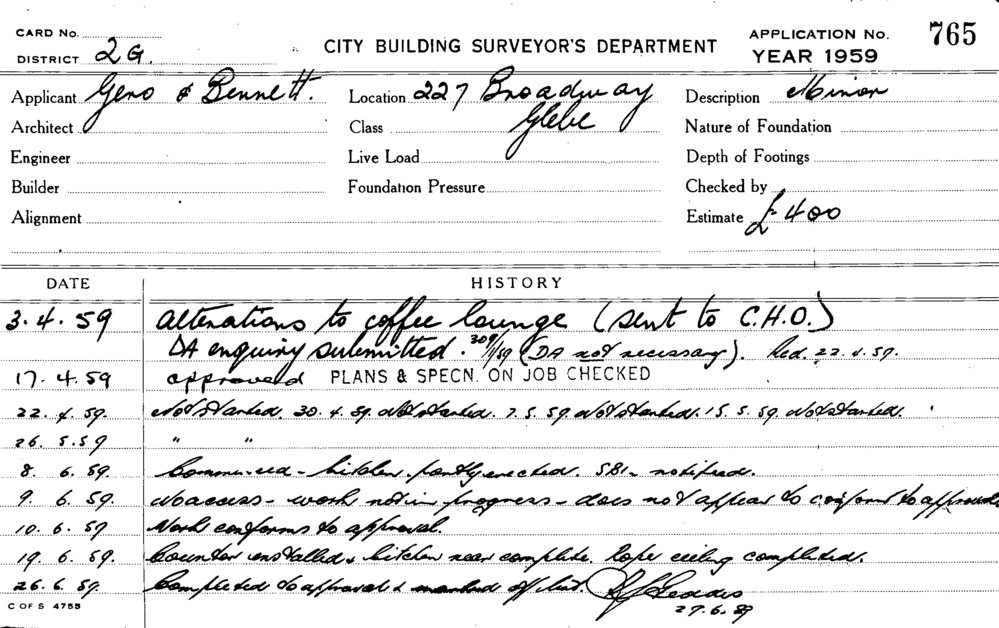 CARD No.
DISTRICT 2G.
CITY BUILDING SURVEYOR'S DEPARTMENT
APPLICATION No. 765
YEAR 1959
Applicant Geno & Bennett. Location 227 Broadway Description Minor
Architect Class Glebe Nature of Foundation
Engineer Live Load Depth of Footings
Builder Foundation Pressure Checked by
Alignment Estimate £400
DATE HISTORY
3.4.59 Alterations to coffee lounge (sent to C.H.O.)
DA enquiry submitted. 309/1/59 (DA not necessary). Red. 22.4.59.
17.4.59 approved PLANS & SPECN. ON JOB CHECKED
22.4.59. Not started. 30.4.59. Not started. 7.5.59. Not started. 15.5.59. Not started.
26.5.59 " "
8.6.59. Commenced - kitchen partly erected. SBI - notified.
9.6.59. No access - work not in progress - does not appear to conform to approval.
10.6.59 Work conforms to approval.
19.6.59. Counter installed & kitchen near complete. Rope ceiling completed.
26.6.59. Completed to approval & marked off list.
27.6.59
C OF S 475B